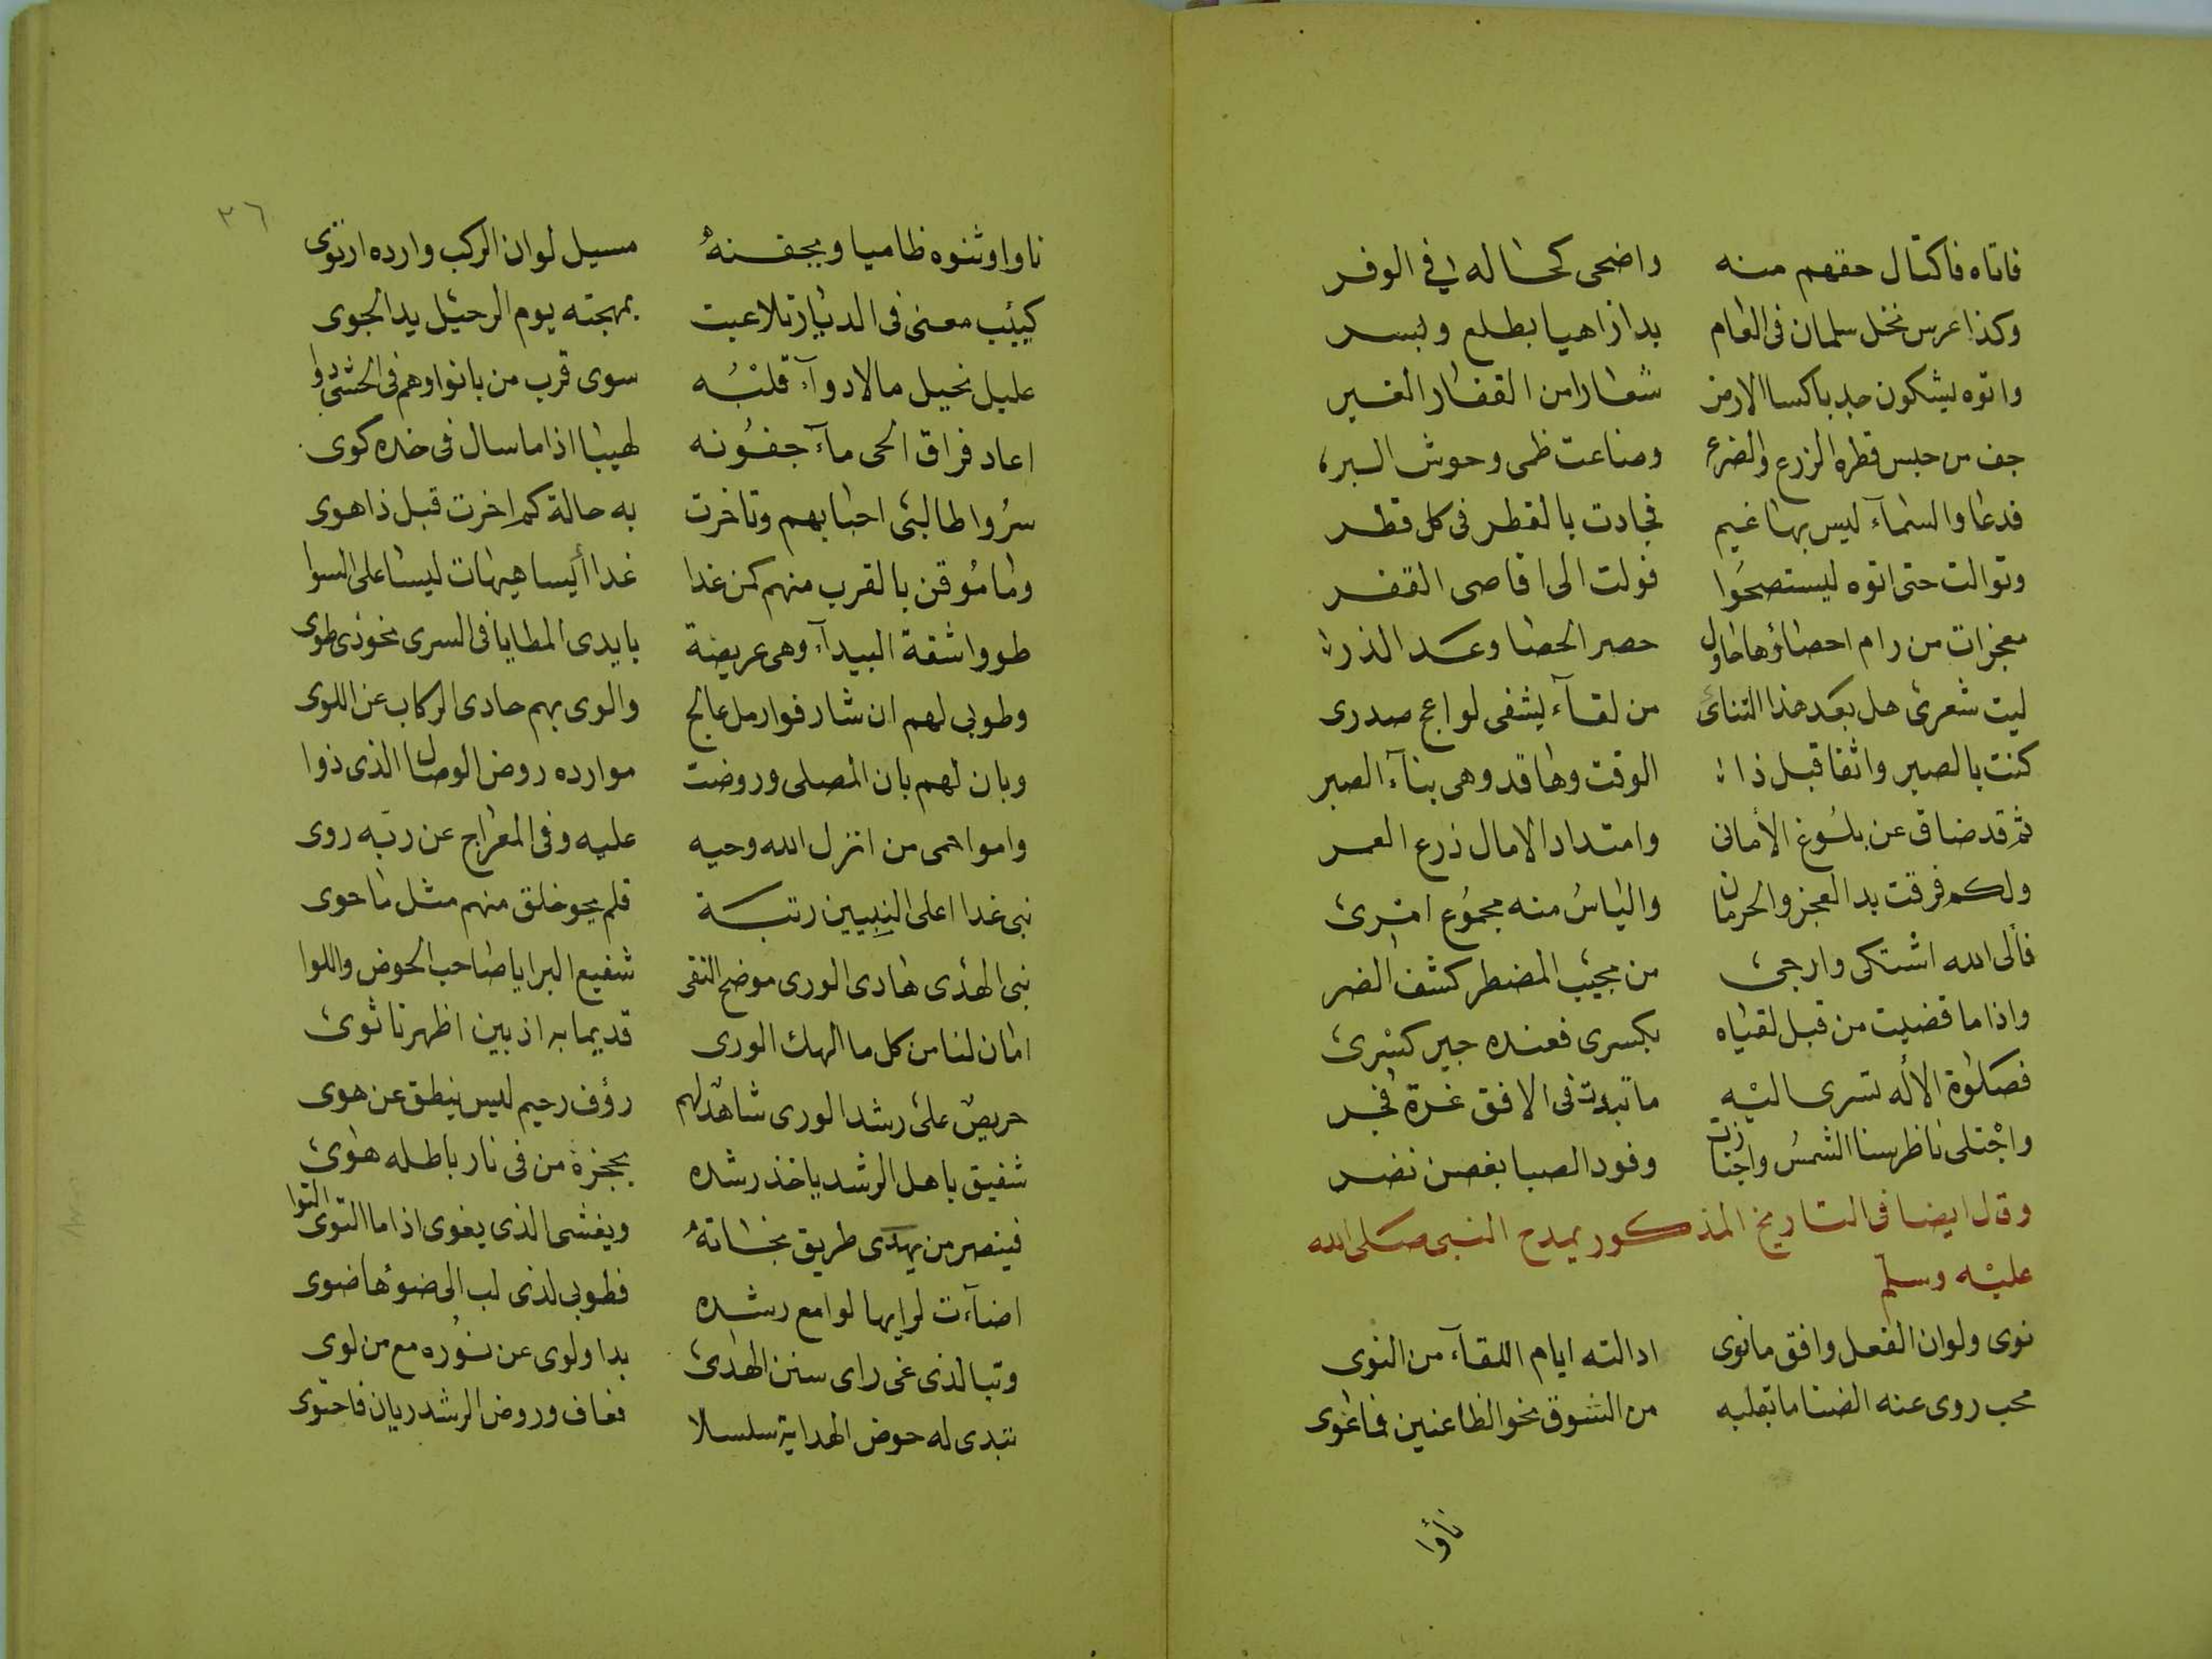 فاتاه فاكتال حقهم منه واضحى كحاله في الوفر
وكذا غرس نخل سلمان فى العام بدا زاهيا بطلع وبسر
واتوه يشكون جدبا كسا الارض شعارا من القفار الغير
جف من حبس قطره الزرع والضرع وضاعت ظمى وحوش البر
فدعا والسمآء ليس بها غيم فجادت بالقطر فى كل قطر
وتوالت حتى اتوه ليستصحوا فولت الى اقاصى القفر
معجزات من رام احصاؤها حاول حصر الحصا وعد الذر
ليت شعرى هل بعد هذا التنائ من لقآء يشفى لواعج صدرى
كنت بالصبر واثقا قبل ذا الوقت وها قد وهى بنآء الصبر
ثم قد ضاق عن بلوغ الأمانى وامتداد الامال ذرع العمر
ولكم فرقت يد العجز والحرمان والياس منه مجموع امرى
فألى الله اشتكى وارجى من مجيب المضطر كشف الضر
واذا ما قضيت من قبل لقياه بكسرى فعنده جبر كسرى
فصلوة الأله تسرى اليه ما تبدت فى الافق غرة فجر
واجتلى ناظر سنا الشمس واجتازت وفود الصبا بغصن نضر
وقال ايضا فى التاريخ المذكور يمدح النبى صلى الله
عليه وسلم
نوى ولوان الفعل وافق ما نوى ادالته ايام اللقآء من النوى
محب روى عنه الضنا ما بقلبه من الشوق نحو الظاعنين فما غوى
نأوا
٣٦
ناوا وثنوه ظاميا وبجفنه مسيل لوان الركب وارده ارتوى
كيئب معنى فى الديار تلاعبت بمهجته يوم الرحيل يد الجوى
عليل نحيل ما لادوآء قلبه سوى قرب من بانوا وهم فى الحشى دوا
اعاد فراق الحى مآء جفونه لهيبا اذا ما سال فى خده كوى
سروا طالبى احبابهم وتاخرت به حالة كم اخرت قبل ذا هوى
وما موقن بالقرب منهم كمن غدا غدا أيسا هيهات ليسا على السوا
طووا شقة البيدآء وهى عريضة بايدى المطايا فى السرى نحو ذى طوى
وطوبى لهم ان شارفوا رمل عالج والوى بهم حادى الركاب عن اللوى
وبان لهم بان المصلى وروضت موارده روض الوصال الذى ذوا
واموا حمى من انزل الله وحيه عليه وفى المعراج عن ربه روى
نبى غدا اعلى النبيين رتبة فلم يحو خلق منهم مثل ما حوى
نبى الهدى هادى الورى موضح التقى شفيع البرايا صاحب الحوض واللوا
امان لنا من كل ما اهلك الورى قديما به اذ بين اظهرنا ثوى
حريص على رشد الورى شاهد لهم رؤف رحيم ليس ينطق عن هوى
شفيق باهل الرشد ياخذ رشده بحجزة من فى نار باطله هوى
فينصر من يهدى طريق نجاته ويغشى الذى يغوى اذا ما التوى التوا
اضآءت لرايها لوامع رشده فطوبى لذى لب الى ضوئها ضوى
وتبا لذى غى راى سنن الهدى بدا ولوى عن نوره مع من لوى
تبدى له حوض الهداية سلسلا فعاف وروض الرشد ريان فاحتوى